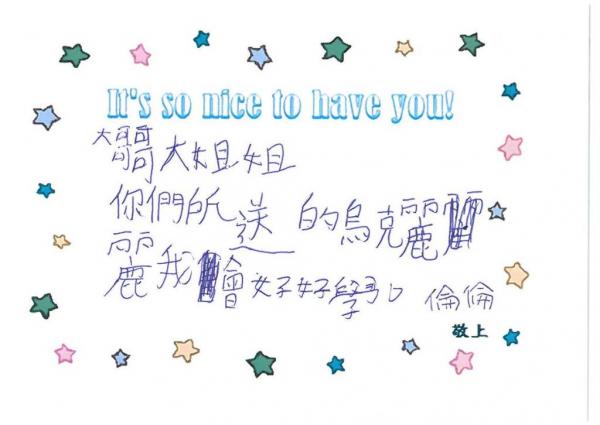 It's so nice to have you!
大哥哥大姐姐
你們所送的烏克麗
麗我會好好學習 倫倫
敬上